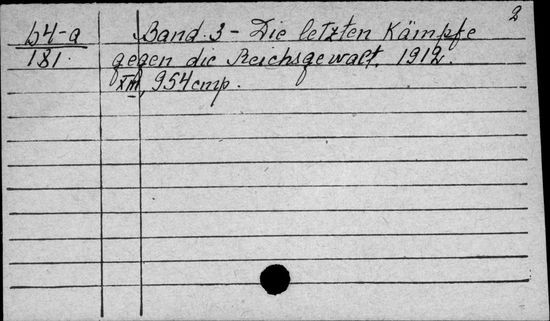 2
б4-a Band 3 - Die letzten Kämpfe
181. gegen die Reichsgewalt. 1912.
XIII, 954 cmp.